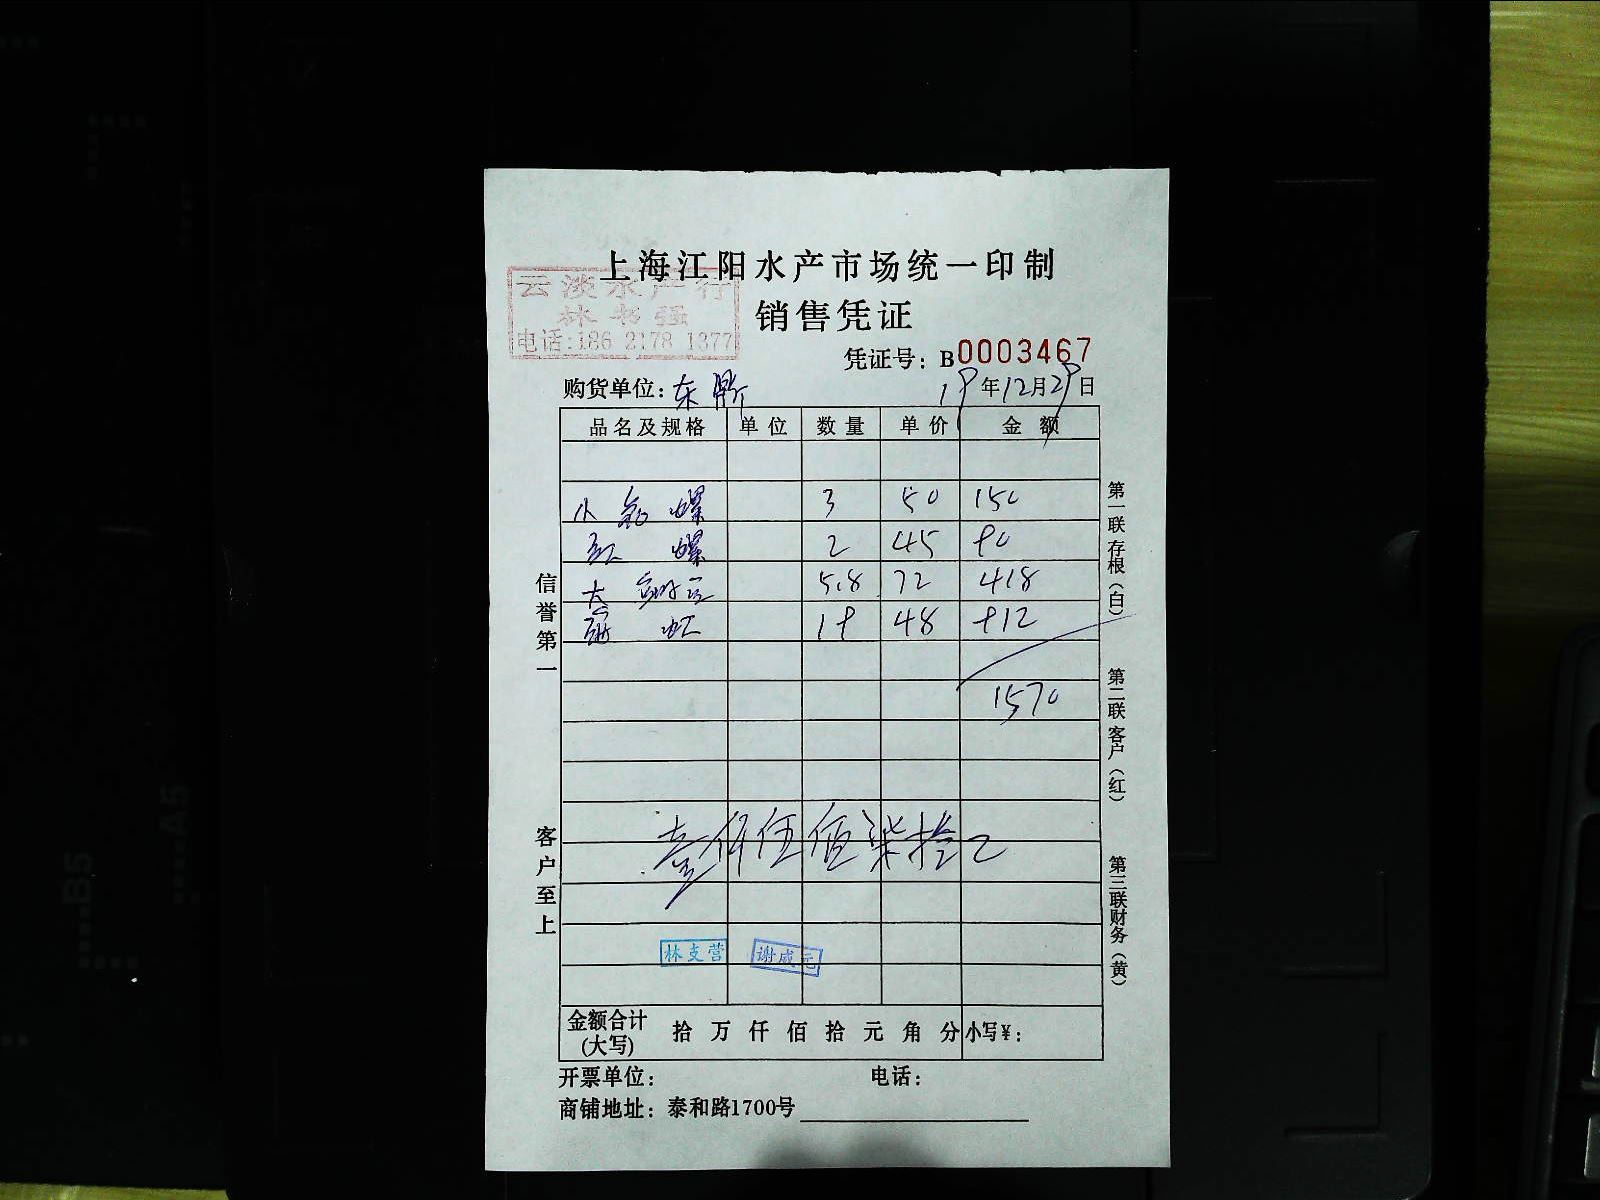 上海江阳水产市场统一印制
云淡水产行
销售凭证
林书强
电话:186 2178 1377
凭证号: B0003467
购货单位: 东 19年12月29日
品名及规格 单位 数量 单价 金额
小 螺 3 50 150
红 螺 2 45 90
大 5.8 72 418
19 48 912
1570
壹仟伍佰柒拾元
林支营 谢威元
金额合计(大写) 拾 万 仟 佰 拾 元 角 分 小写¥:
开票单位: 电话:
商铺地址: 泰和路1700号
信誉第一
客户至上
第一联 存根(白)
第二联 客户(红)
第三联 财务(黄)
B5
A5